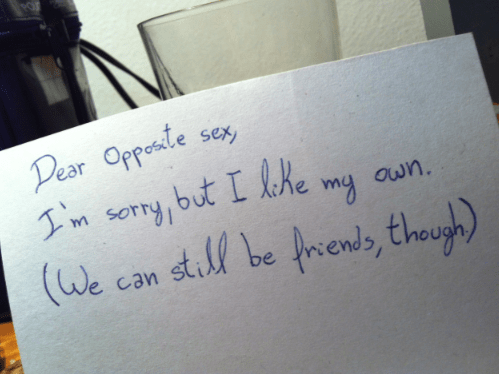 Dear Opposite sex,
I'm sorry, but I like my own.
(We can still be friends, though.)